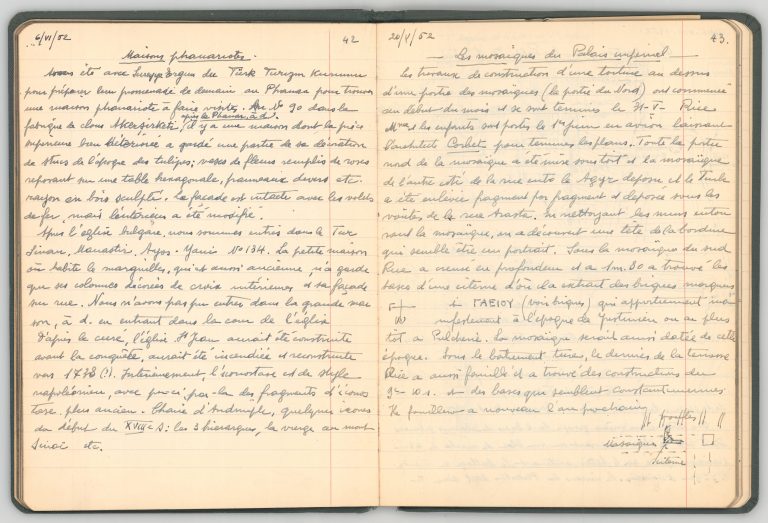 6/VI/52
42
Maisons phanariotes.
été avec du Türk Turizm Kurumu
pour préparer leur promenade de demain au Phanar pour trouver
une maison phanariote à faire visiter. Au No 90 dans la
après le Phanar, à d.
fabrique de clous Akerşirketi, il y a une maison dont la pièce
supérieure bien a gardé une partie de sa décoration
de stucs de l'époque des tulipes; vases de fleurs remplis de roses
reposant sur une table hexagonale, panneaux divers etc.
rayon en bois sculpté. La façade est intacte avec les volets
de fer, mais l'intérieur a été modifié.
Après l'église bulgare, nous sommes entrés dans le Tur
Sinan, Manastir, Ayos-Yanis No 134. La petite maison
où habite le marguiller, qui est aussi ancienne, n'a gardé
que ses colonnes décorées de croix intérieures et sa façade
sur rue. Nous n'avons pas pu entrer dans la grande mai
son, à d. en entrant dans la cour de l'église
D'après le curé, l'église St Jean aurait été construite
avant la conquête, aurait été incendiée et reconstruite
vers 1738 (?). Intérieurement, l'iconostase est de style
napoléonien, avec par-ci, par-là des fragments d'icones
plus ancien. Chaire d'Andrinople, quelques icones
du début du XVIIIe s: les 3 hiérarques, la vierge au mont
Sinaï etc.
20/V/52
43.
Les mosaïques du Palais impérial
Les travaux de construction d'une toiture au dessus
d'une partie des mosaïques (la partie du Nord) ont commencé
au début du mois et se sont terminés le Rice
Mme et les enfants sont partis le 1er juin en avion laissant
l'architecte Corbet pour terminer les plans. Toute la partie
nord de la mosaïque a été mise sous toit et la mosaïque
de l'autre côté de la rue entre le et le Turbe
a été enlevée fragment par fragment et déposée sous les
voûtes, de la rue Arasta. En nettoyant les murs entou
rant la mosaïque, on a découvert une tête de la bordure
qui semble être un portrait. Sous la mosaïque du sud
Rice a creusé en profondeur et a 1m.30 a trouvé les
bases d'une citerne d'où il a extrait des briques marquées
+ ΓΑΕΙΟΥ (voir briques) qui appartiennent mani
festement à l'époque de Justinien ou au plus
tôt à Pulchérie. La mosaïque serait aussi datée de cette
époque. Sous le bâtiment turc, le dernier de la terrasse
Rice a aussi fouillé et a trouvé des constructions du
9e-10 s. et des bases qui semblent constantiniennes
Il fouillera à nouveau l'an prochain
mosaïque
citerne